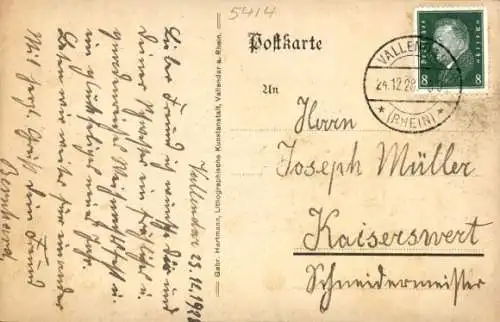 5414
Postkarte
VALLENDAR
24.12.28
* (RHEIN) *
Deutsches Reich
8 8
An
Herrn
Joseph Müller
Kaiserswert
Schneidermeister
Gebr. Hartmann, Lithographische Kunstanstalt, Vallendar a. Rhein.
Vallendar 23.12.1928
Lieber Freund ich wünsche dir und
deiner Schwester ein fröhliches u.
gnadenreiches Weihnachtsfest u.
ein glückseliges neues Jahr.
Beten wir weiter für einander
Mit herzl. Gruß dein Freund
Bernhard